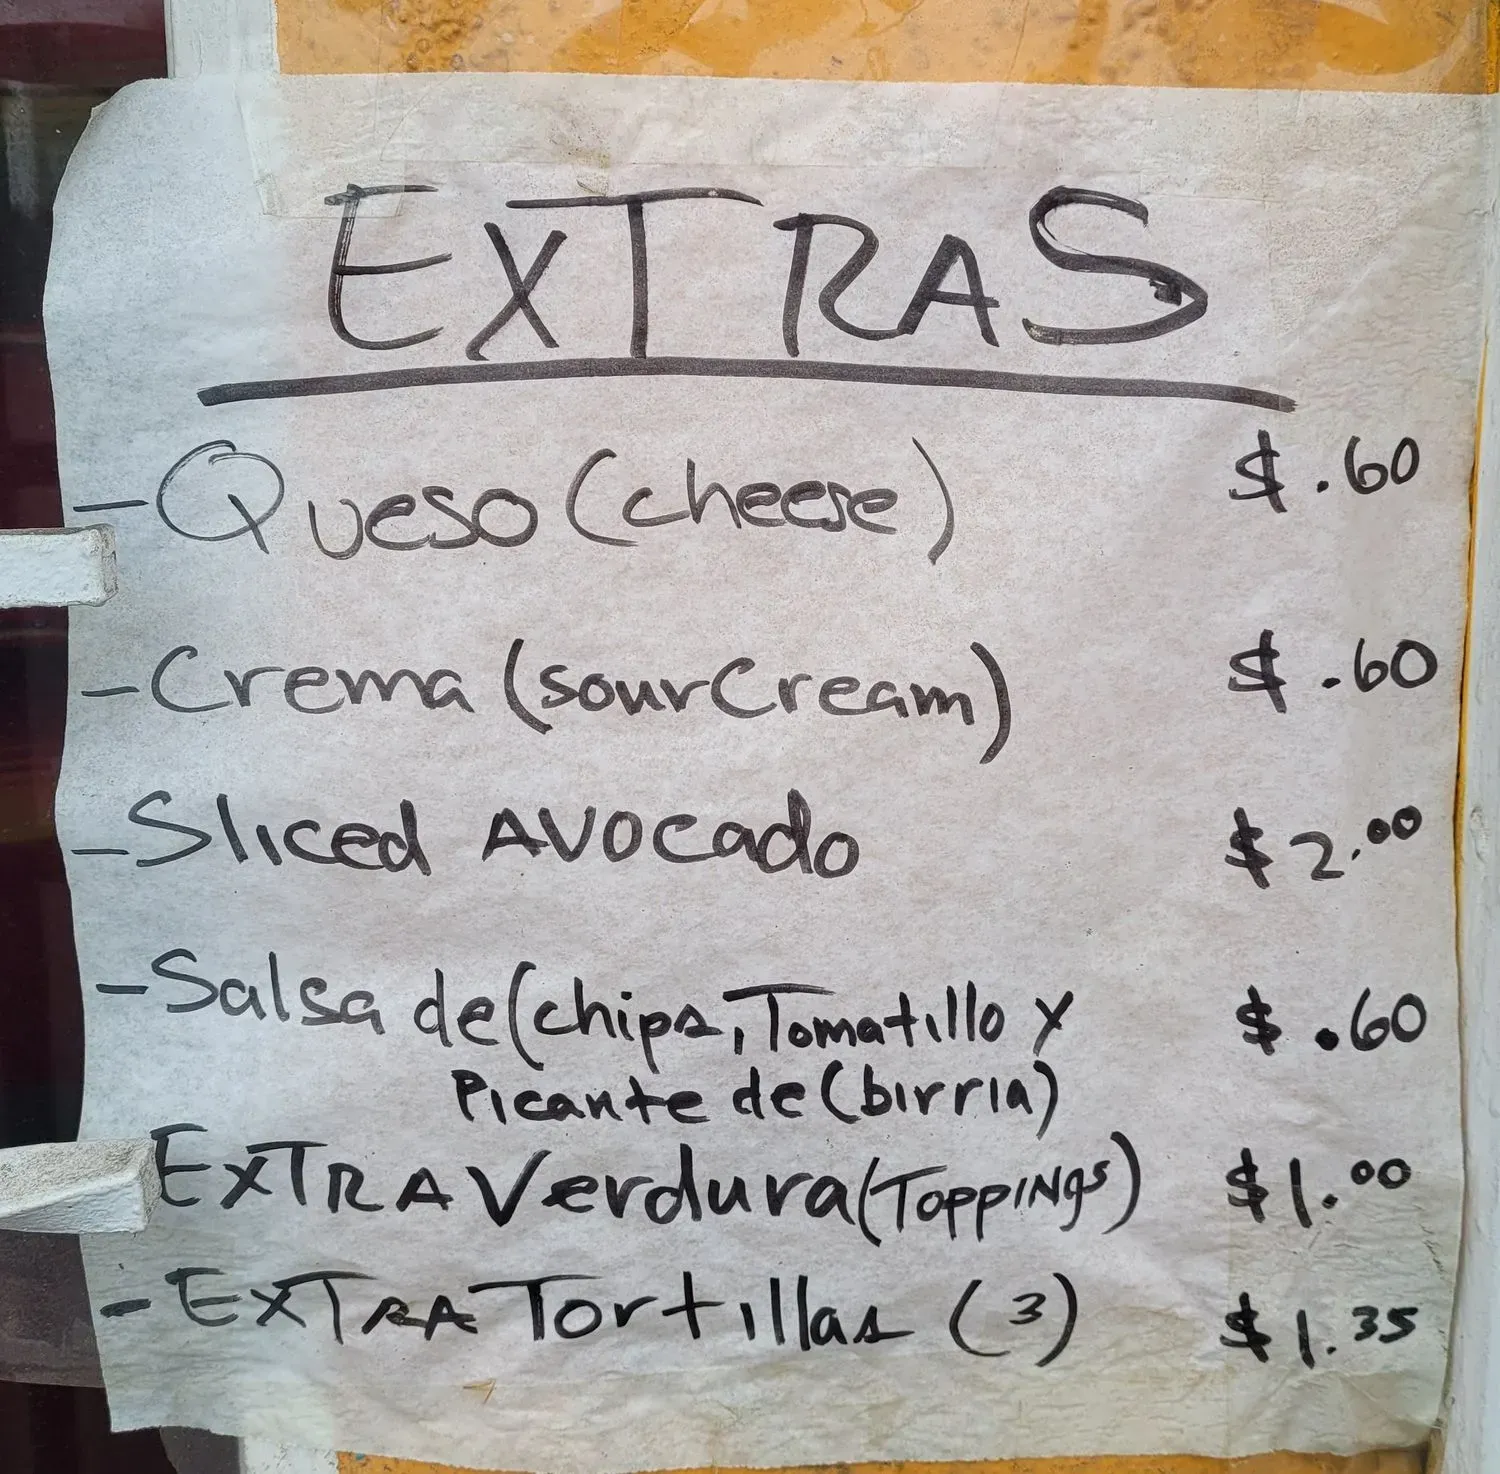 EXTRAS
- Queso (cheese) $.60
- Crema (sour Cream) $.60
- Sliced AVOCADO $2.00
- Salsa de (chips, Tomatillo y $.60
Picante de (birria)
EXTRA Verdura (Toppings) $1.00
- EXTRA Tortillas (3) $1.35